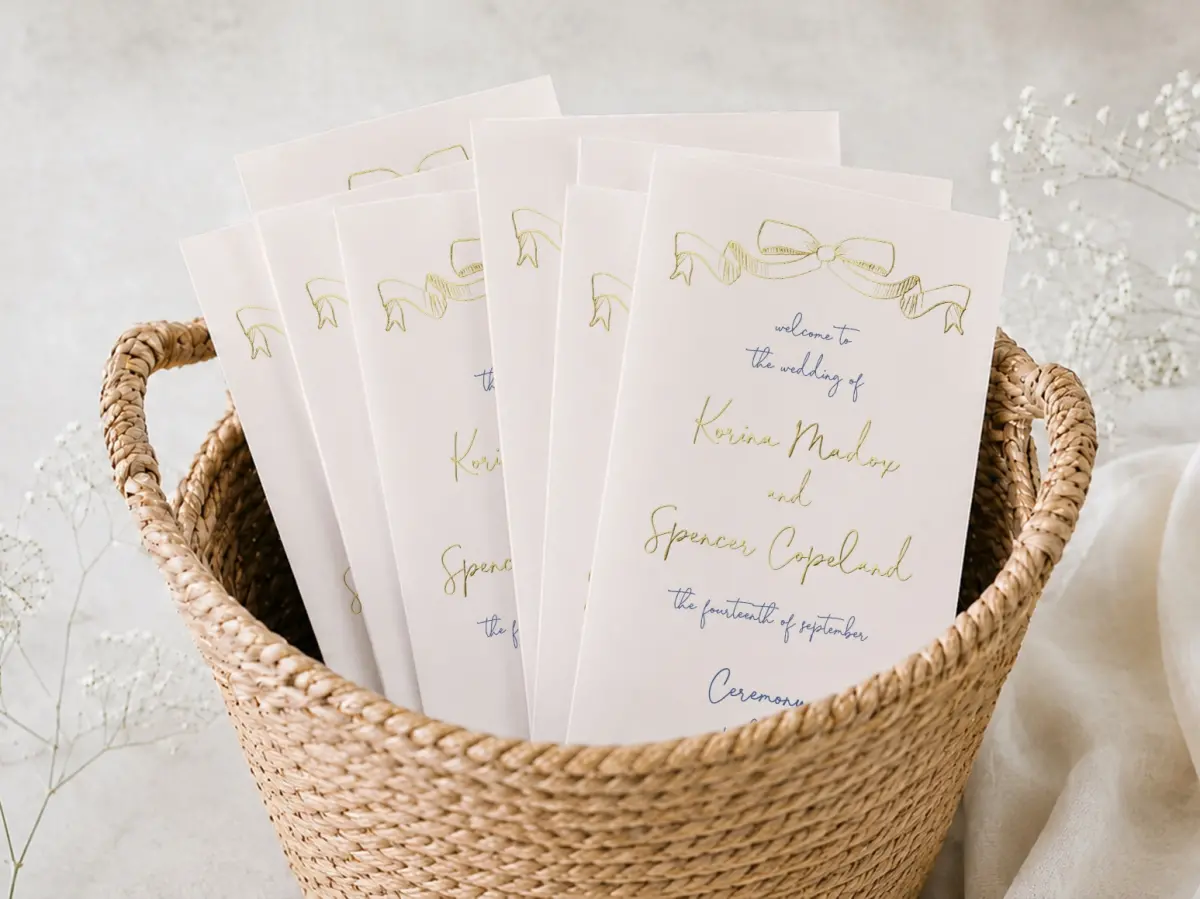 welcome to
the wedding of
Korina Madox
and
Spencer Copeland
the fourteenth of september
Ceremony
th
Kori
Spenc
the f